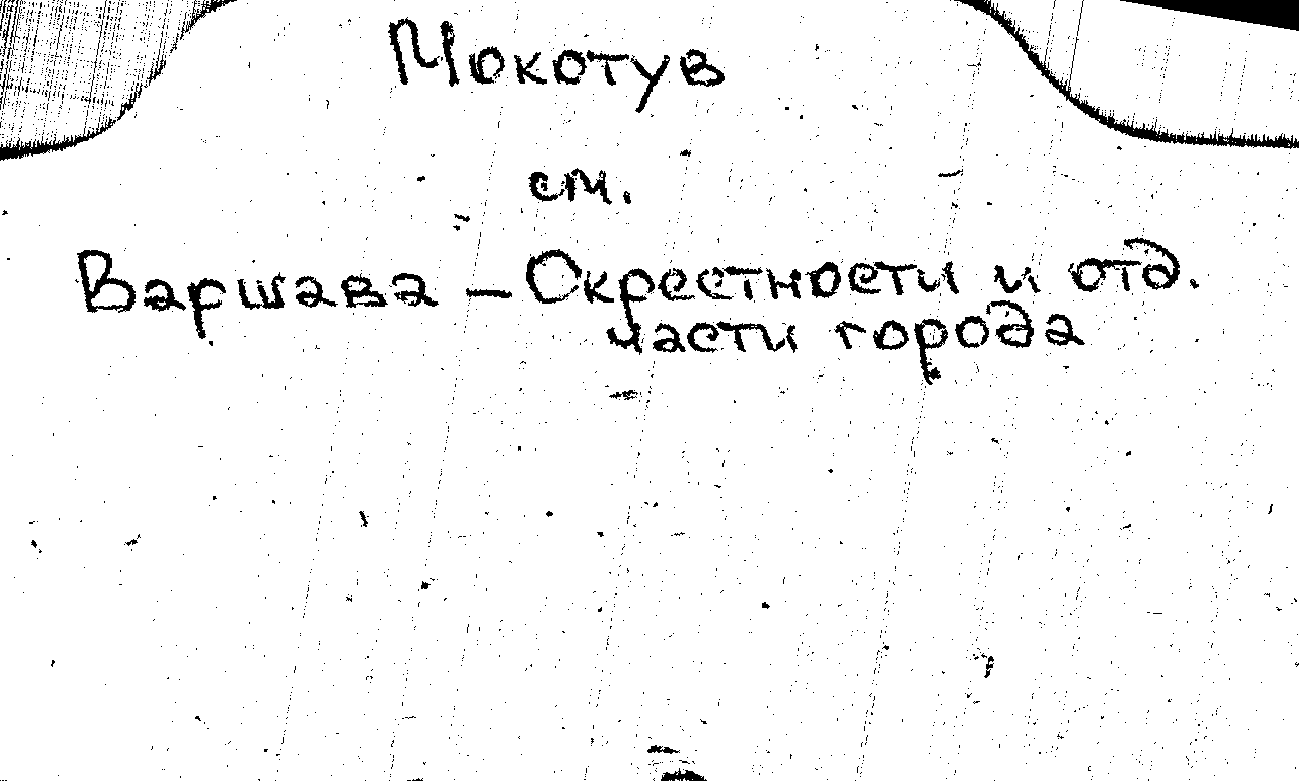 Мокотув
см.
Варшава – Окрестности и отд.
части города